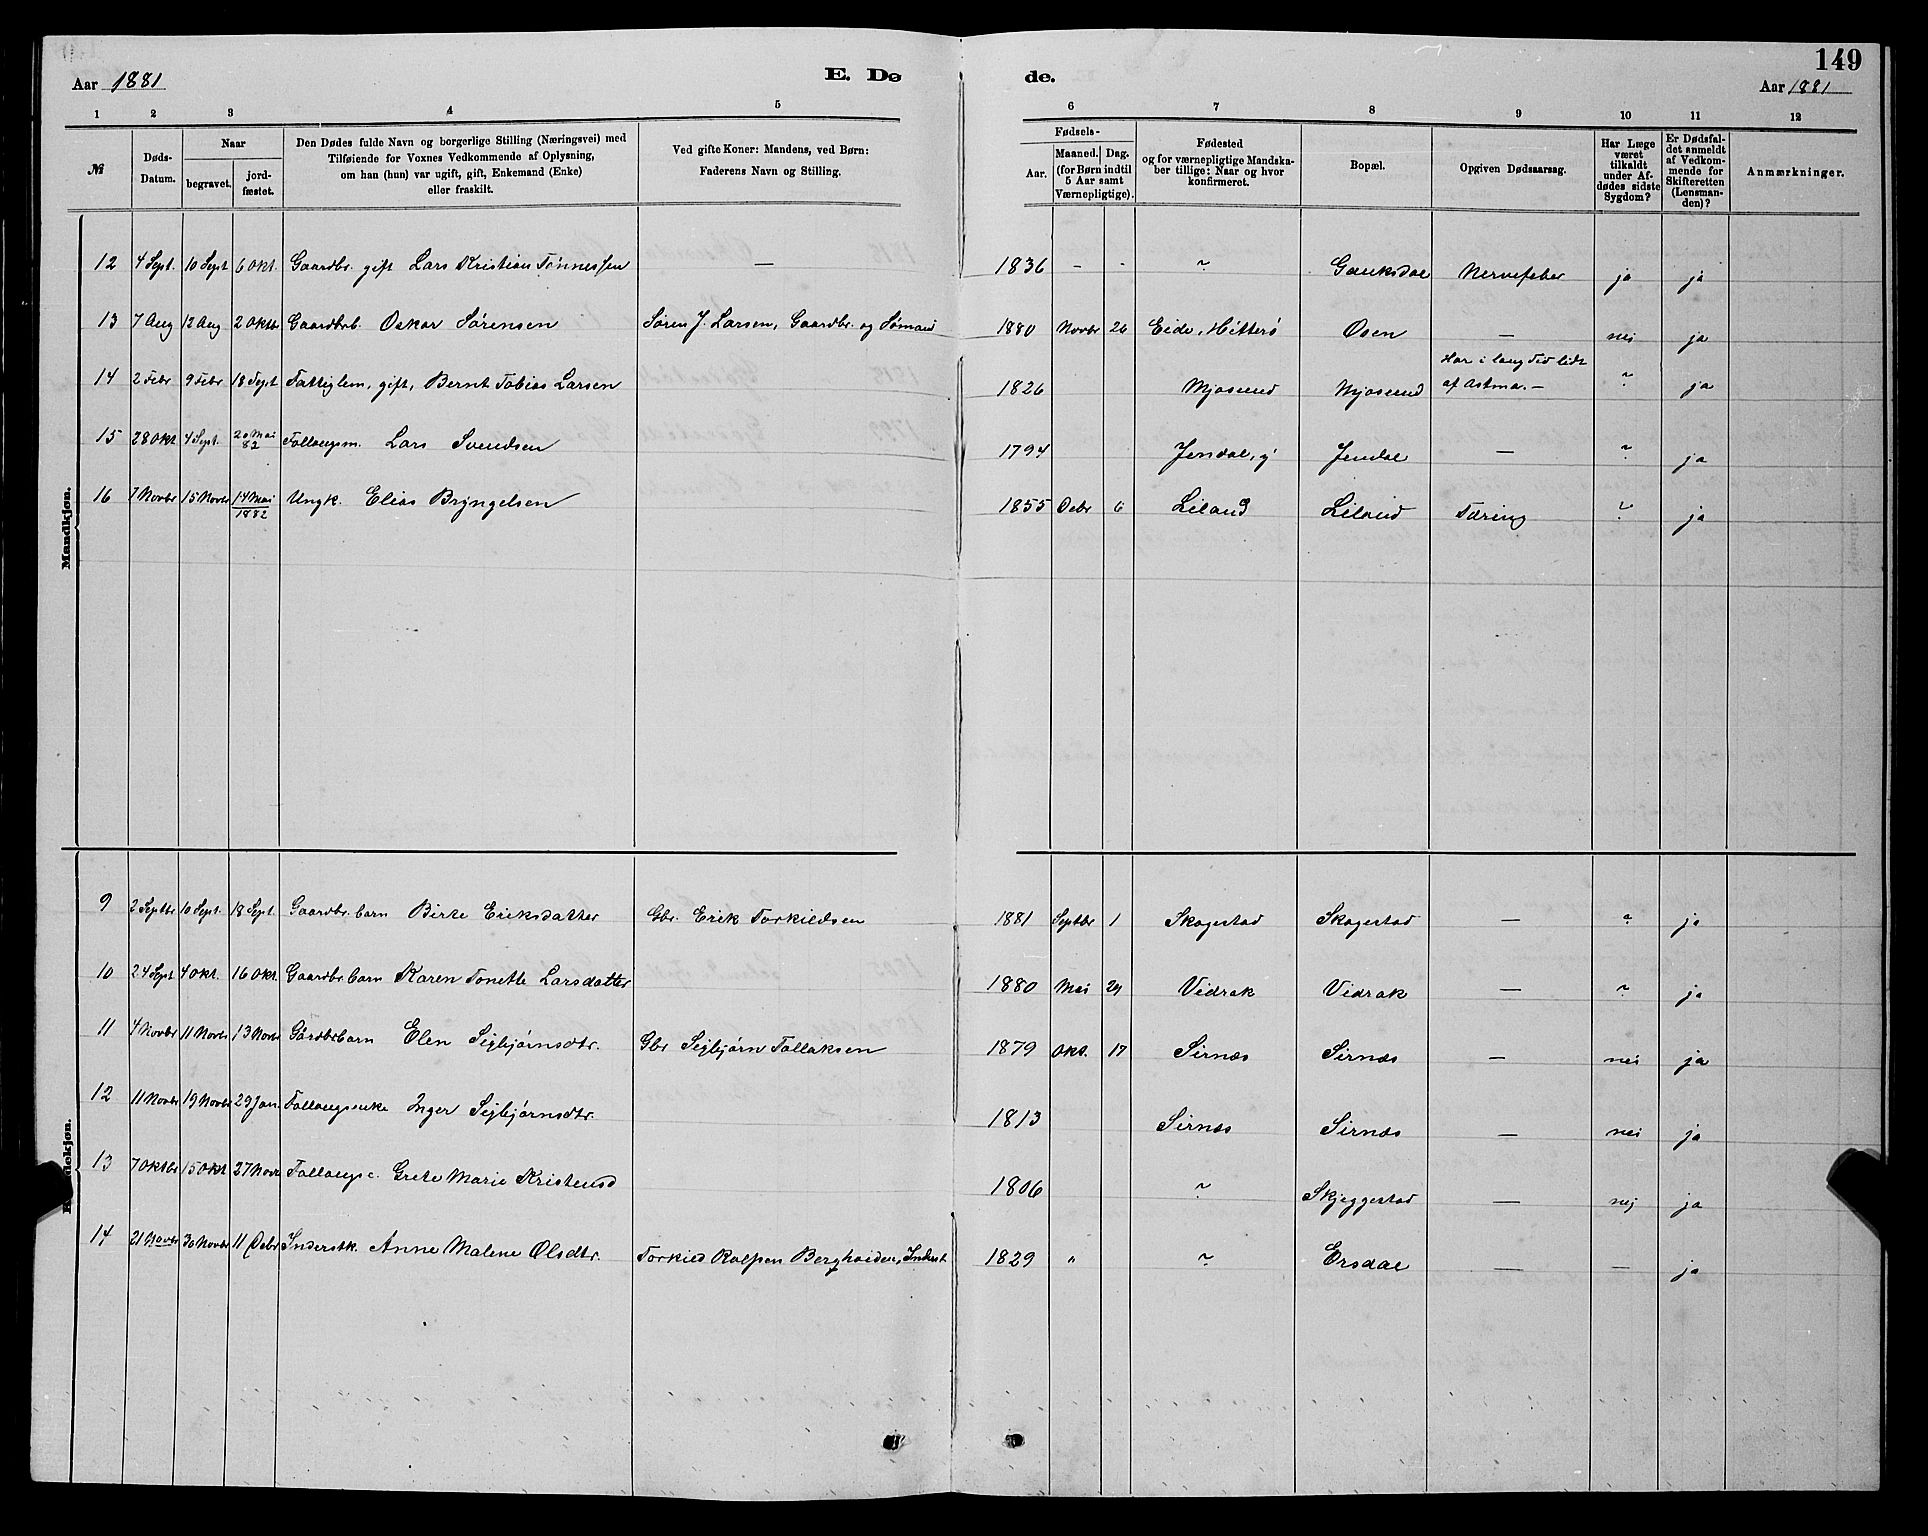 149
Aar 1881 E. Dø de. Aar 1881
1 2 3 4 5 6 7 8 9 10 11 12
№
Døds-
Datum.
Naar
begravet.
jord-
fæstet.
Den Dødes fulde Navn og borgerlige Stilling (Næringsvei) med
Tilføiende for Voxnes Vedkommende af Oplysning,
om han (hun) var ugift, gift, Enkemand (Enke)
eller fraskilt.
Ved gifte Koner: Mandens, ved Børn:
Faderens Navn og Stilling.
Fødsels-
Aar.
Maaned. Dag.
(for Børn indtil
5 Aar samt
Værnepligtige).
Fødested
og for værnepligtige Mandska-
ber tillige: Naar og hvor
konfirmeret.
Bopæl.
Opgiven Dødsaarsag.
Har Læge
været
tilkaldt
under Af-
dødes sidste
Sygdom?
Er Dødsfal-
det anmeldt
af Vedkom-
mende for
Skifteretten
(Lensman-
den)?
Anmærkninger.
Mandkjøn.
12 4 Sept. 10 Sept 6 Okt. Gaardbr. gift Lars Kristian Tønnessen — 1836 - - ~ Gauksdal Nervefeber ja ja
13 7 Aug 12 Aug 2 Oktbr Gaardbrb. Oskar Sørensen Søren J. Larsen, Gaardbr. og Sømand 1880 Novbr 26 Eide, Hitterø Osen — nei ja
14 2 Febr 9 Febr 18 Sept Fattiglem, gift, Bernt Tobias Larsen 1826 Mjosund Mjosund Har i lang Tid lidt
af Astma. — ~ ja
15 28 Okt. 4 Sept. 20 Mai
82 Follaugsm. Lars Svendsen 1794 Jendal, Jendal — ~ ja
16 7 Novbr 15 Novbr 14 Mai
1882 Ungk. Elias Bryngelsen 1855 Debr 6 Leland Leland Tæring ~ ja
9 2 Septbr 10 Sept. 18 Sept. Gaardbr. barn Birte Eriksdatter Gbr. Erik Torkildsen 1881 Septbr 1 Skogestad Skogestad — ~ ja
10 24 Sept 4 Okt. 16 Okt. Gaardbr barn Karen Tonette Larsdatter 1880 Mai 29 Vidrak Vidrak — ~ ja
11 4 Novbr 11 Novbr 13 Novbr Gardbrbarn Elen Sigbjørnsdtr. Gbr Sigbjørn Tollaksen 1879 Okt. 17 Sirnæs Sirnæs — nei ja
12 11 Novbr 19 Novbr 29 Jan. Follaugsenke Inger Sigbjørnsdtr. 1813 Sirnæs Sirnæs — nei ja
13 7 Oktbr 15 Okt 27 Novr Follaugse. Grete Marie Kristensd 1806 ~ Skjeggestad — nej ja
14 21 Novbr 30 Novbr 11 Debr Inderstk. Anne Malene Olsdtr. Torkild Rolfsen Bergheiden, Inderst 1829 " ~ Ersdal — — ja